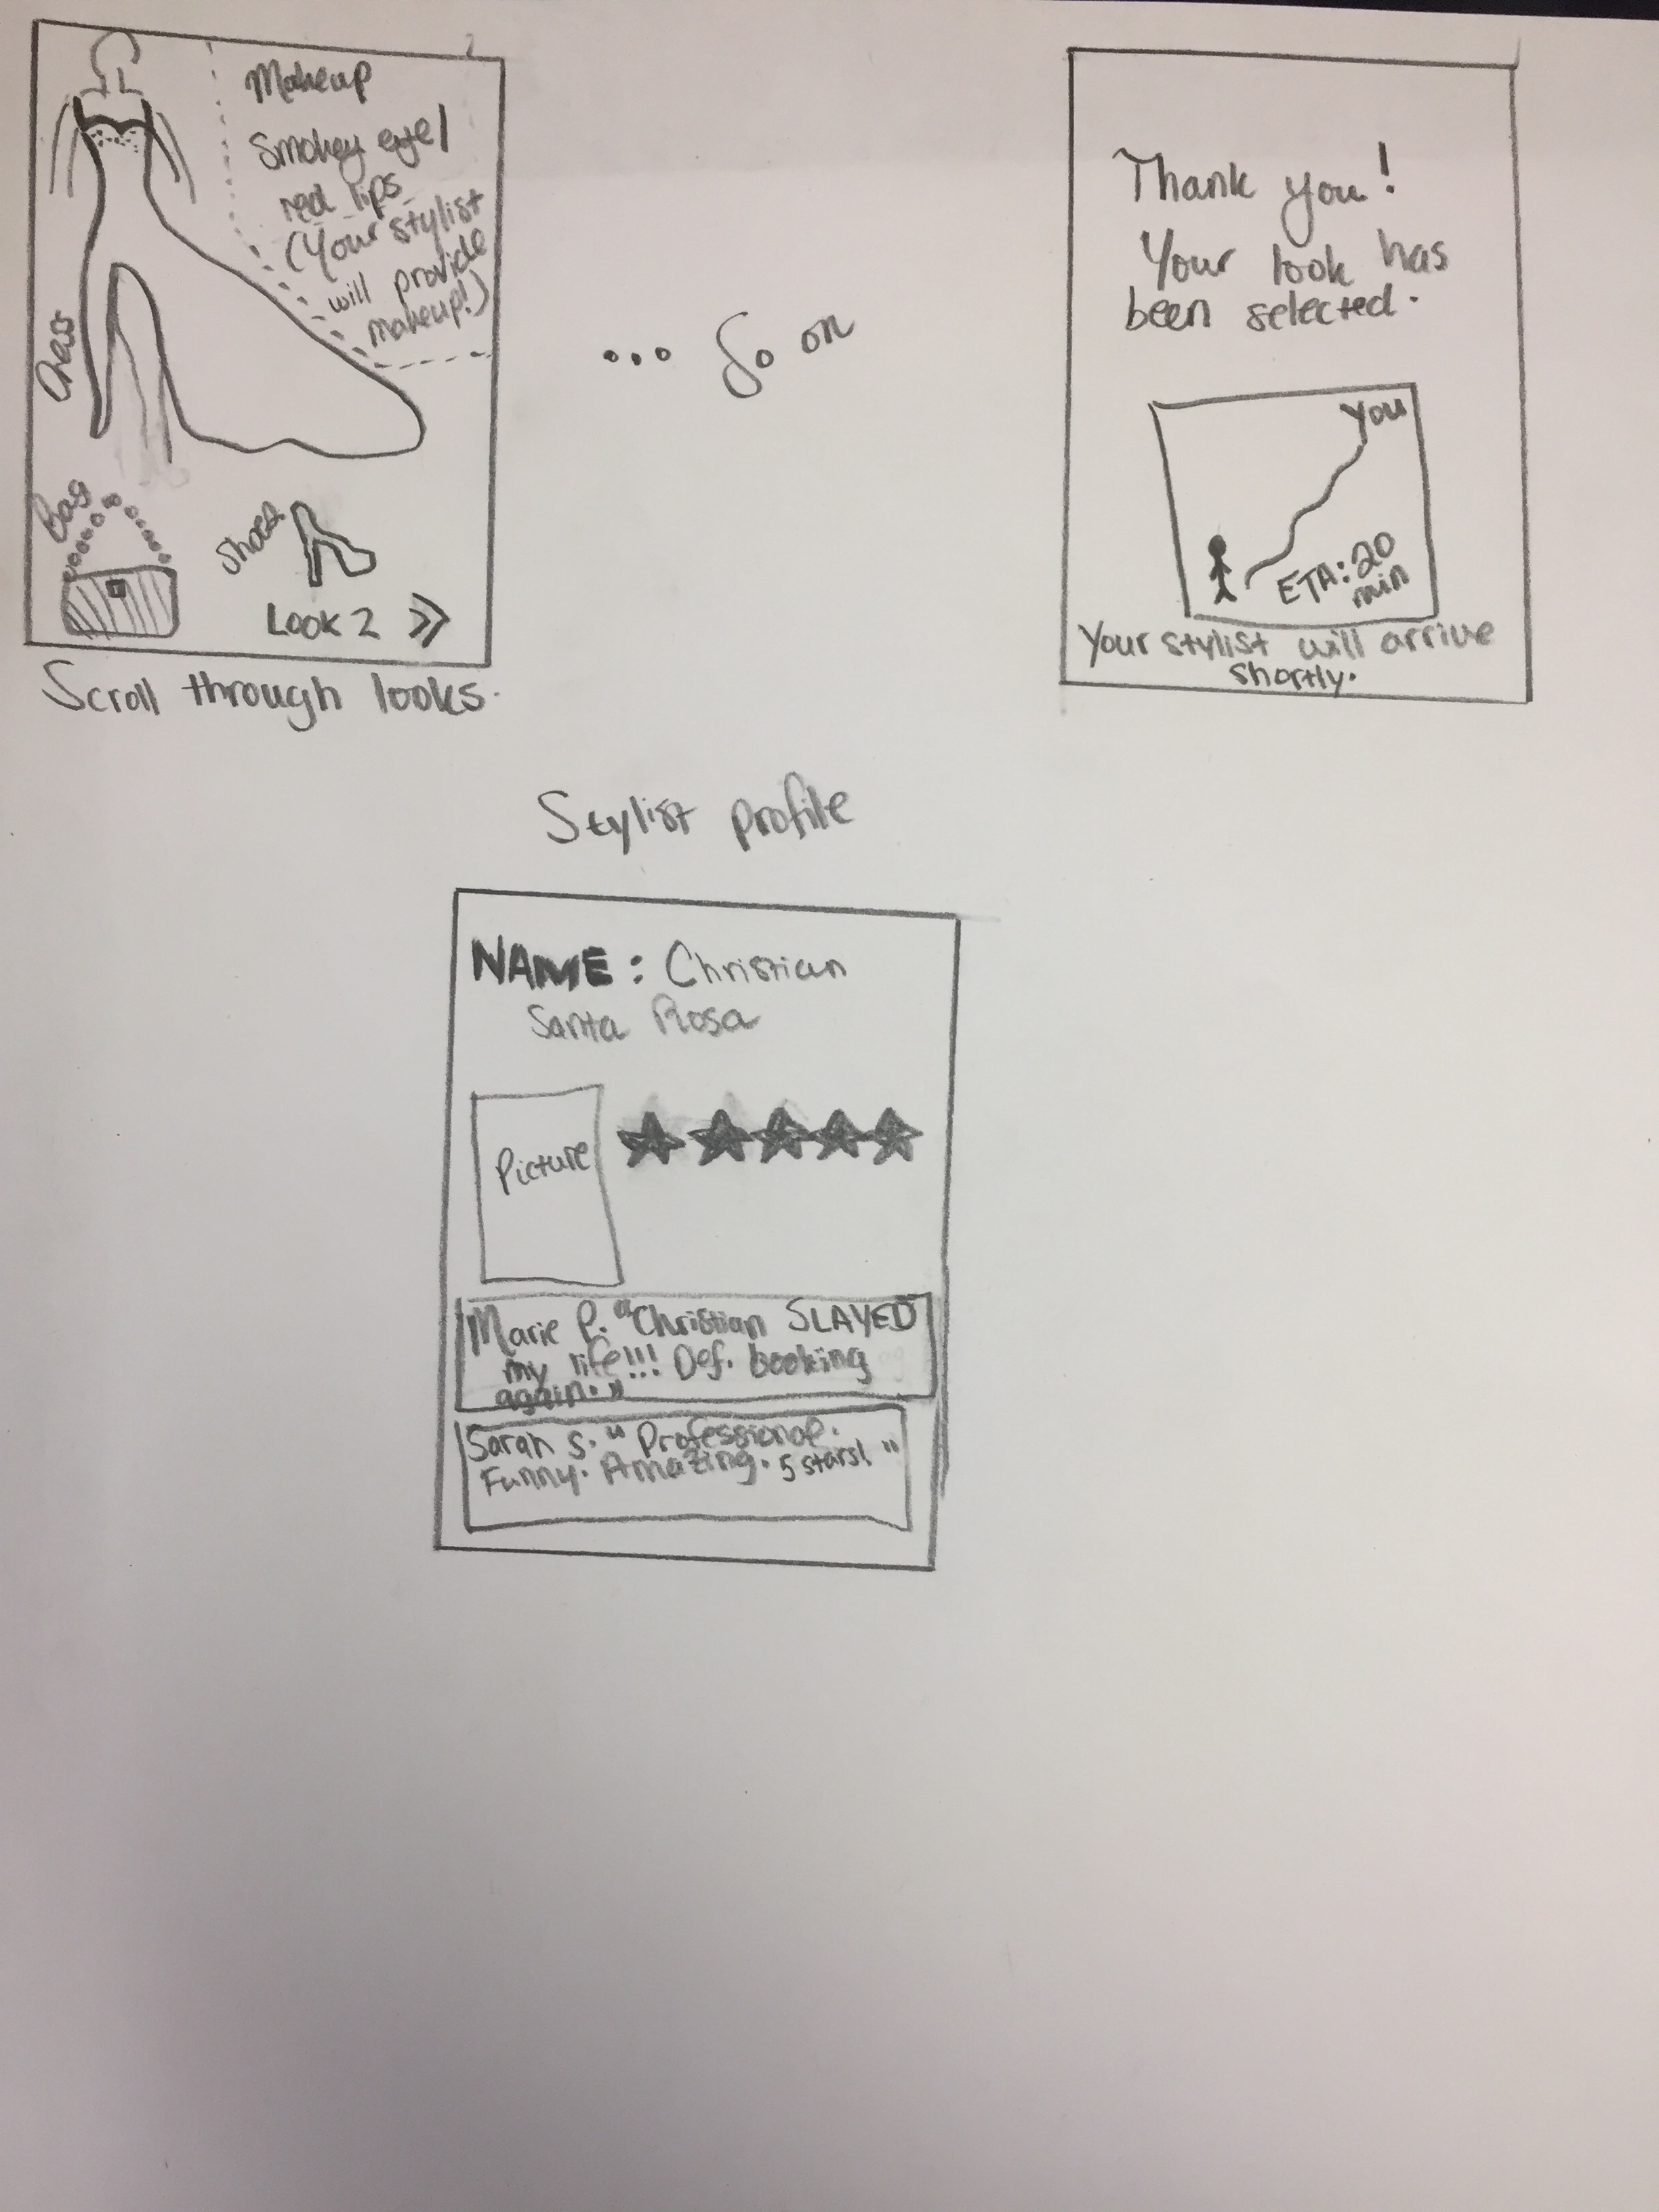 Makeup
Smokey eye/
red lips
(Your stylist
will provide
makeup!)
Dress
Bag
Shoes
Look 2 >>
Scroll through looks.
... So on
Thank you!
Your look has
been selected.
You
ETA: 20
min
Your stylist will arrive
shortly.
Stylist profile
NAME: Christian
Santa Rosa
Picture
Marie P. "Christian SLAYED
my life!!! Def. booking
again."
Sarah S. "Professional.
Funny. Amazing. 5 stars!"